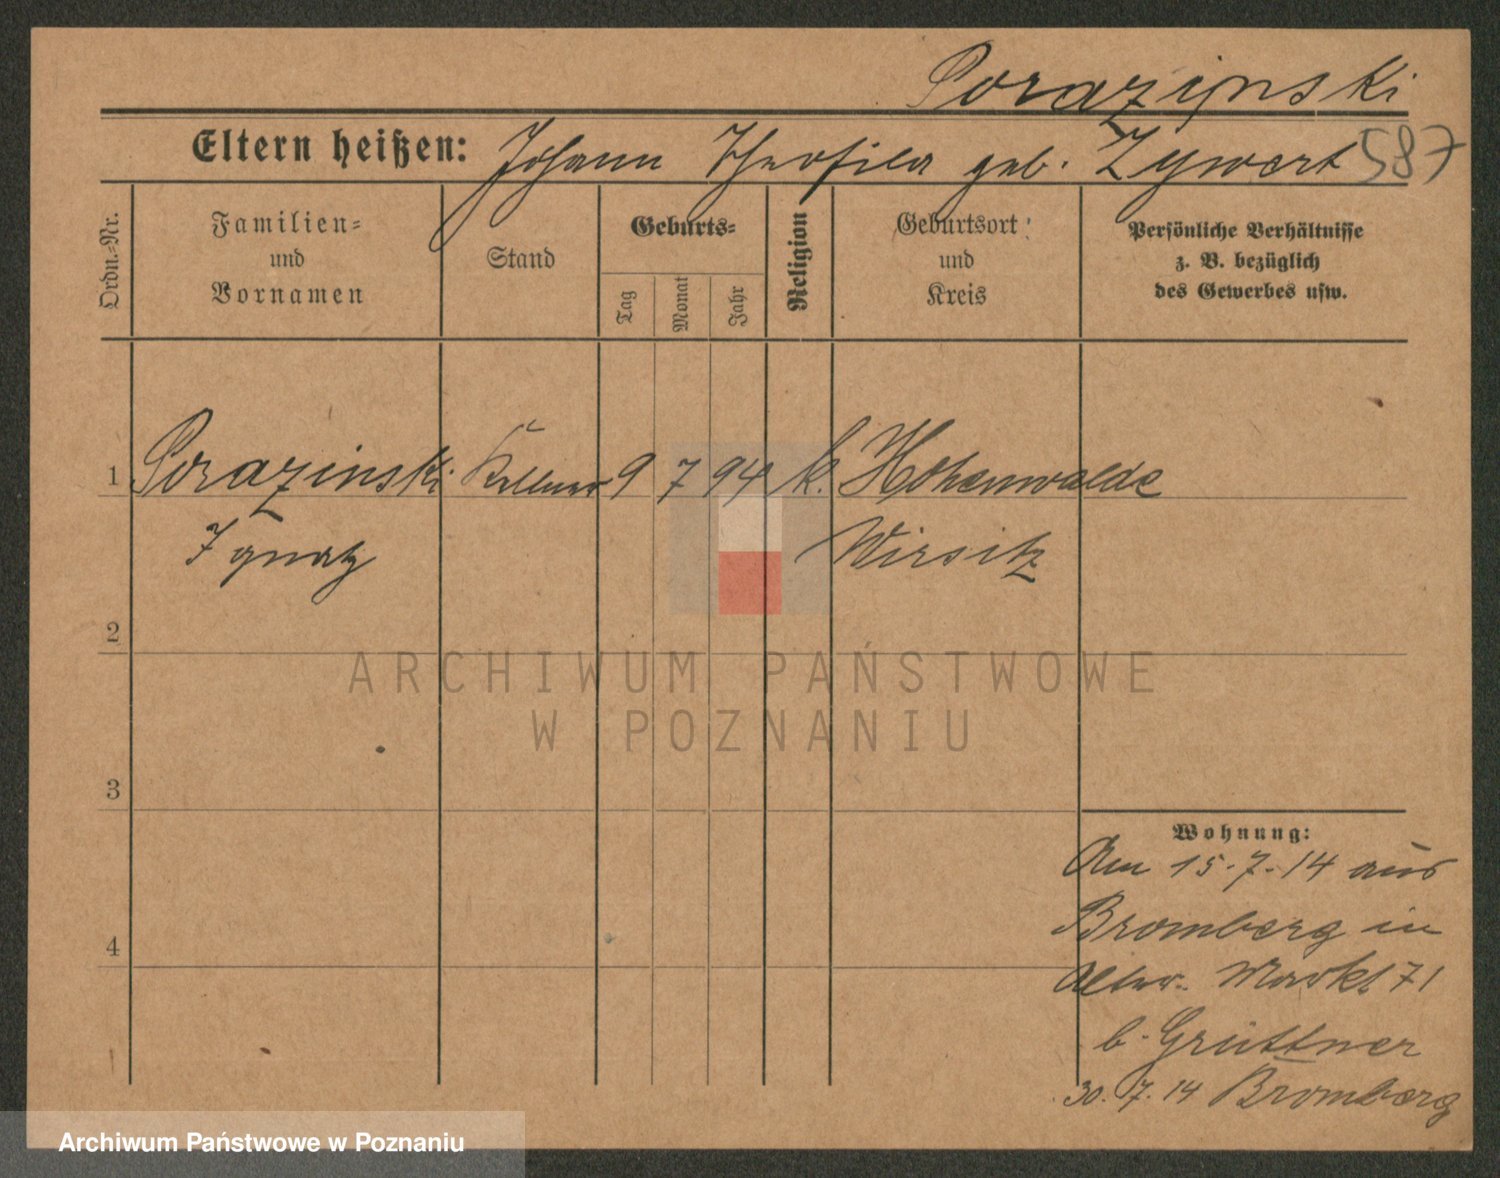 Porazinski
Eltern heißen: Johann Theofila geb. Zywert 587
Ordn.-Nr.
Familien=
und
Vornamen
Stand
Geburts=
Tag
Monat
Jahr
Religion
Geburtsort
und
Kreis
Persönliche Verhältnisse
z. B. bezüglich
des Gewerbes usw.
1 Porazinski Kellner 9 7 94 k. Hohenwalde
Ignatz Wirsitz
2
3
4
Wohnung:
Am 15.7.14 aus
Bromberg in
Alter Markt 71
b. Grüttner
30.7.14 Bromberg
ARCHIWUM PAŃSTWOWE
W POZNANIU
Archiwum Państwowe w Poznaniu